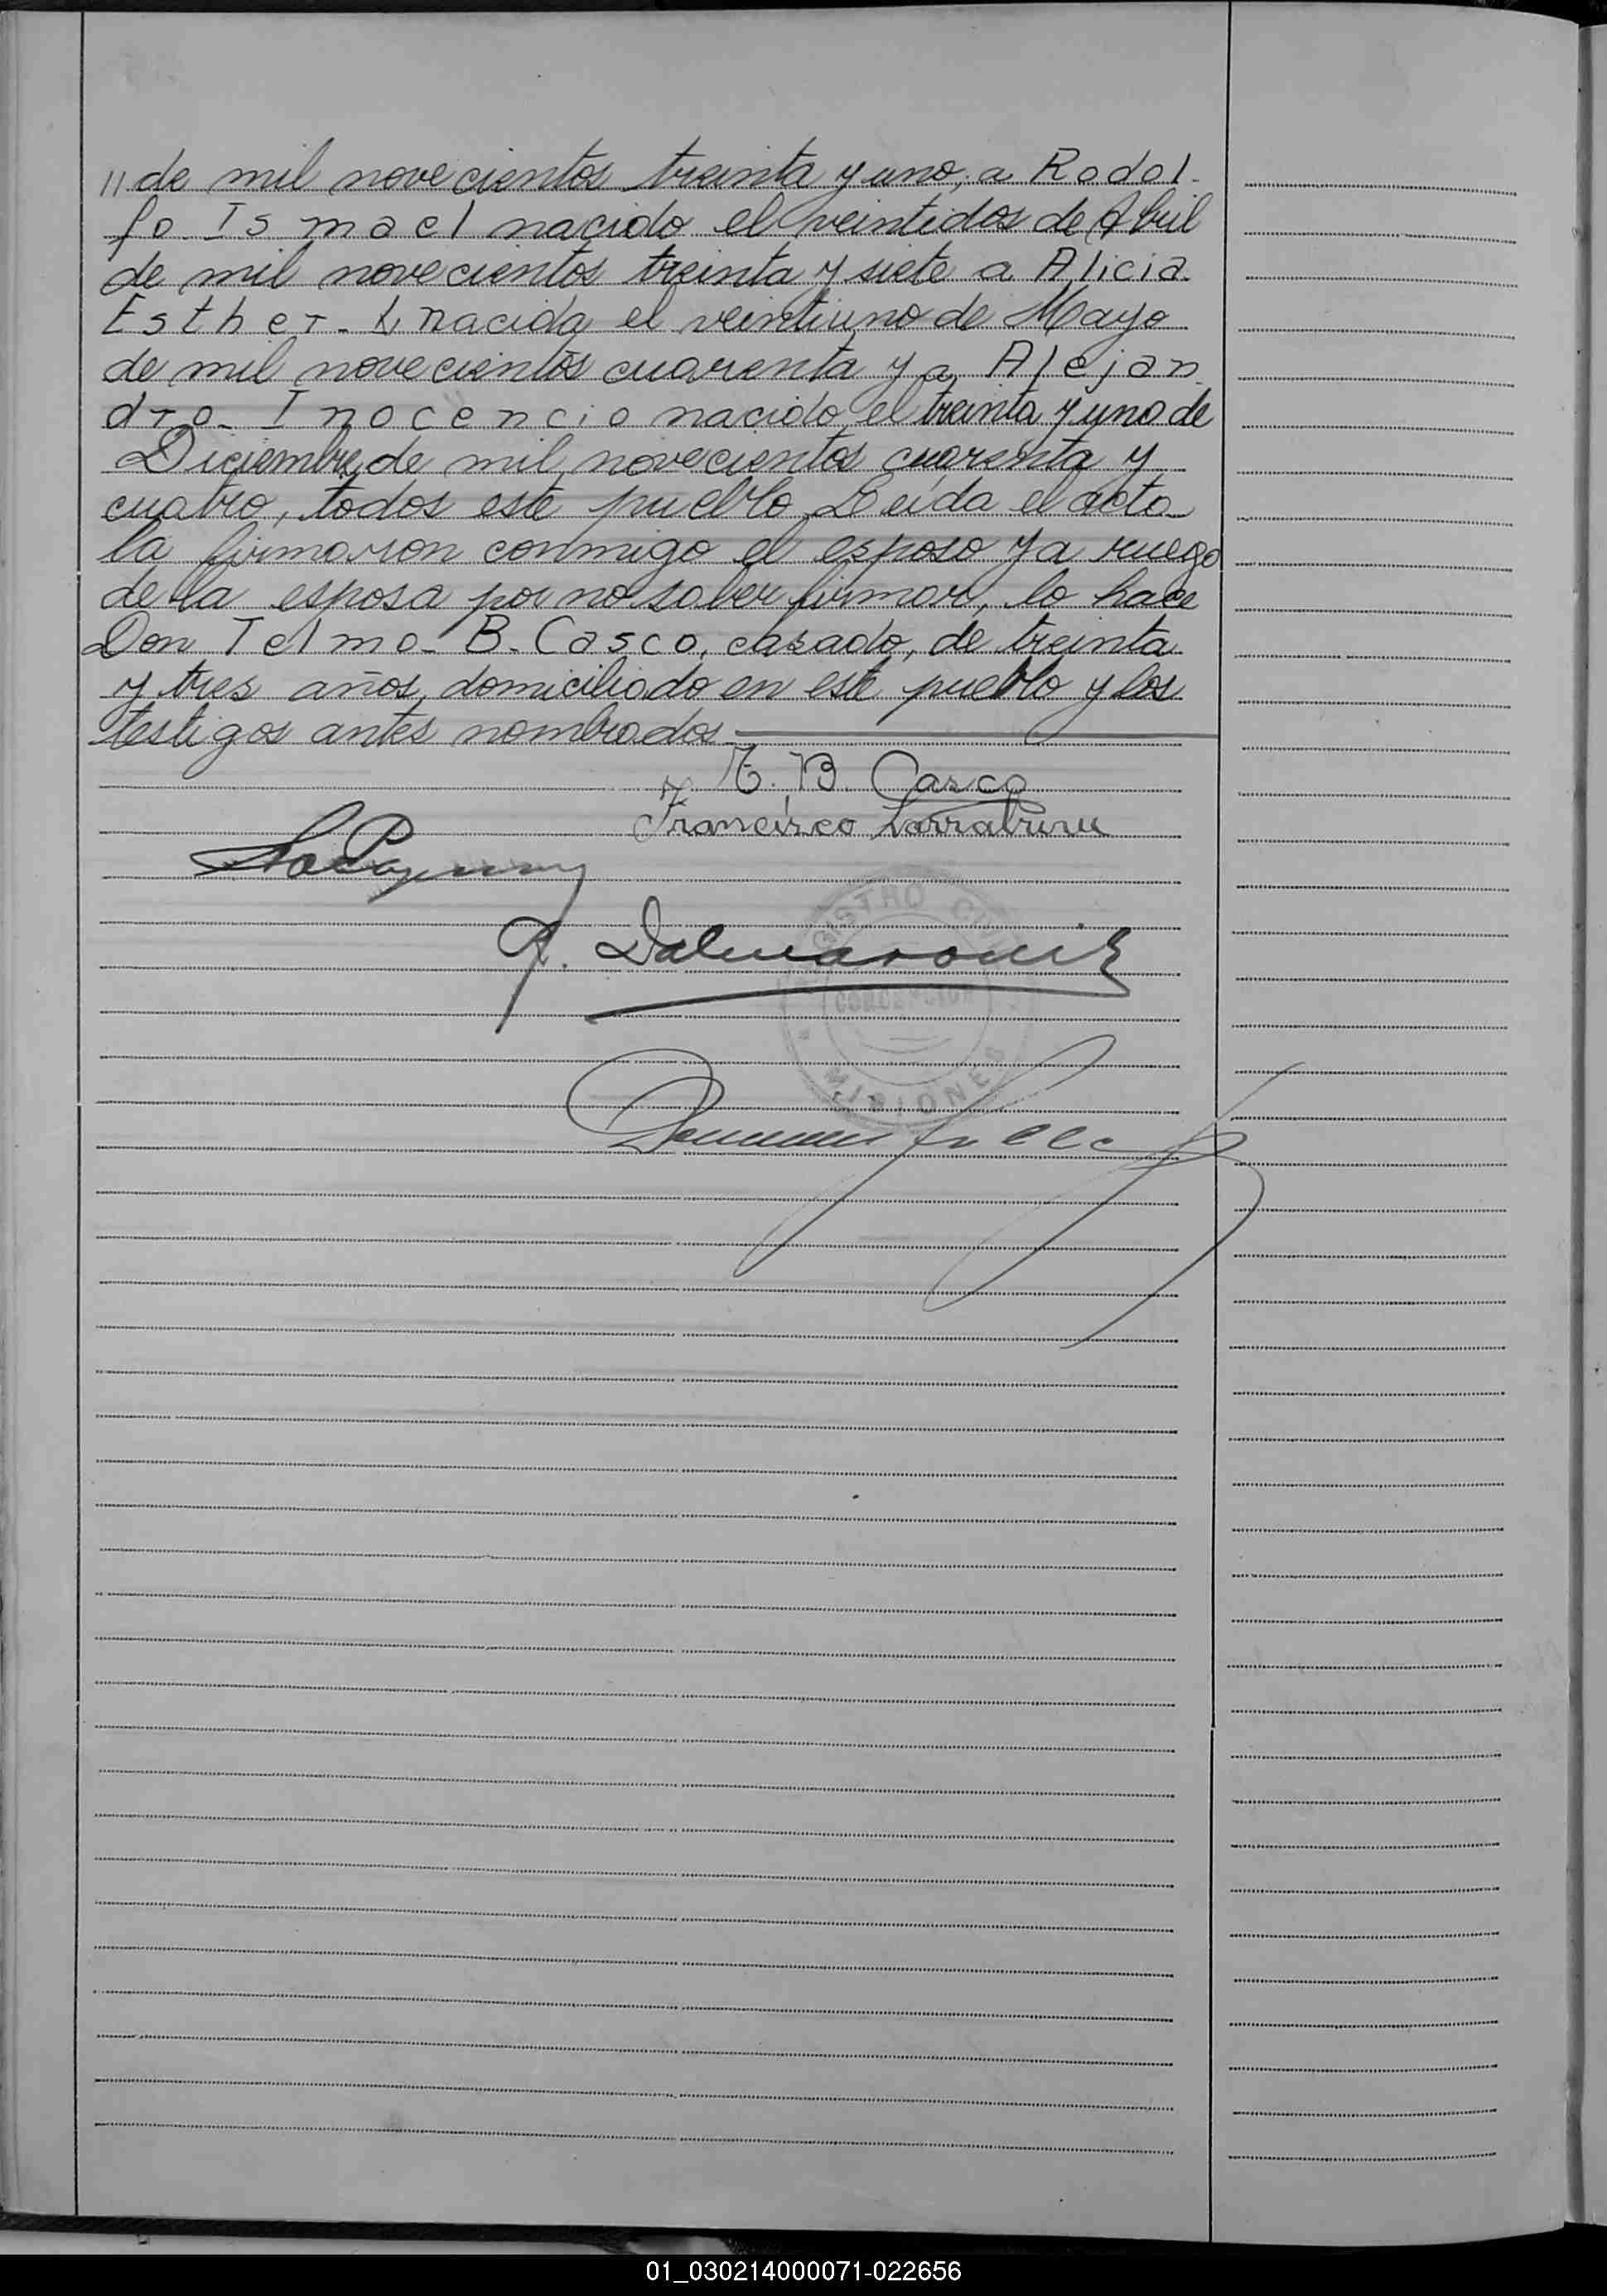 // de mil novecientos treinta y uno, a Rodol-
fo Ismael nacido el veintidos de Abril
de mil novecientos treinta y siete a Alicia
Esther - nacida el veintiuno de Mayo
de mil novecientos cuarenta y a Alejan
dro - Inocencio nacido el treinta y uno de
Diciembre de mil novecientos cuarenta y
cuatro, todos este pueblo Leida el acta
la firmaron conmigo el esposo y a ruego
de la esposa por no saber firmar, lo hace
Don Telmo - B. Casco, casado, de treinta
y tres años, domiciliado en este pueblo y los
testigos antes nombrados
T. B. Casco
Francisco Larraburu
A. Dalmaroni
REGISTRO CIVIL
CONCEPCION
MISIONES
01_030214000071-022656